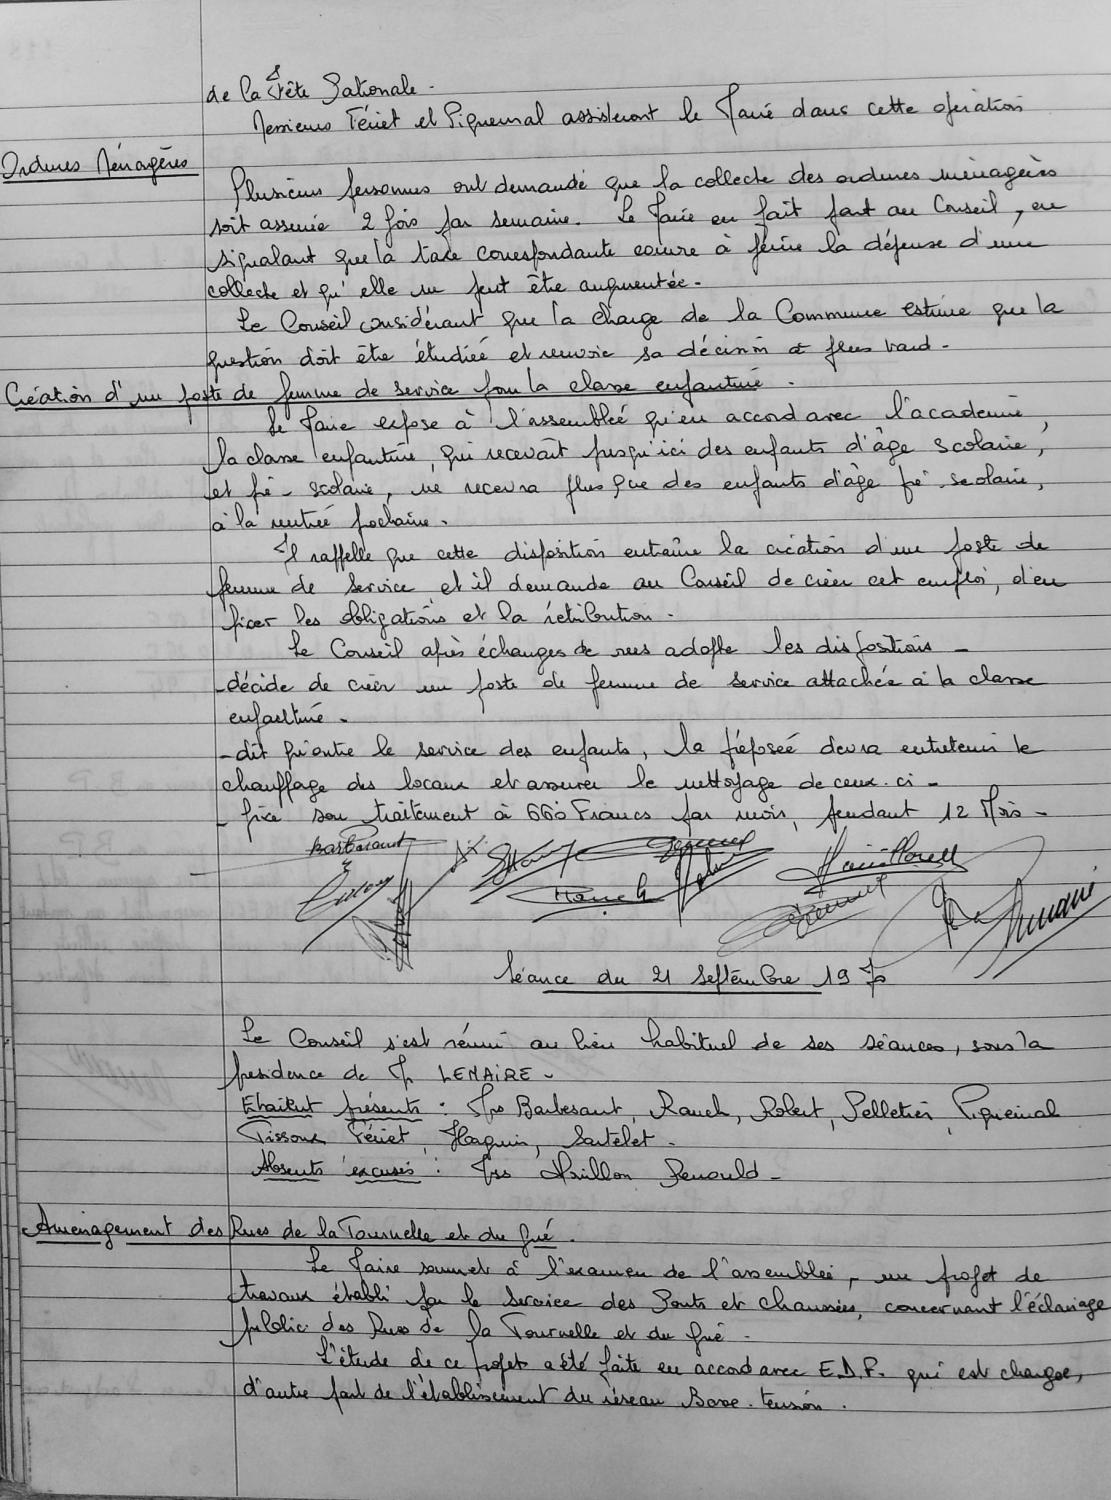 de la Fête Nationale.
Messieurs Fériet et Piqueinal assisteront le Maire dans cette opération
Ordures Ménagères
Plusieurs personnes ont demandé que la collecte des ordures ménagères
soit assurée 2 fois par semaine. Le Maire en fait part au Conseil, en
signalant que la taxe correspondante couvre à peine la dépense d'une
collecte et qu'elle ne peut être augmentée.
Le Conseil considérant que la charge de la Commune estime que la
question doit être étudiée et renvoie sa décision à plus tard.
Création d'un poste de femme de service pour la classe enfantine.
Le Maire expose à l'assemblée qu'en accord avec l'académie,
la classe enfantine, qui recevait jusqu'ici des enfants d'âge scolaire,
et pré-scolaire, ne recevra plus que des enfants d'âge pré-scolaire,
à la rentrée prochaine.
Il rappelle que cette disposition entraîne la création d'un poste de
femme de service et il demande au Conseil de créer cet emploi, d'en
fixer les obligations et la rétribution.
Le Conseil après échanges de vues adopte les dispositions -
- décide de créer un poste de femme de service attachée à la classe
enfantine.
- dit qu'outre le service des enfants, la préposée devra entretenir le
chauffage des locaux et assurer le nettoyage de ceux-ci -
- fixe son traitement à 660 Francs par mois, pendant 12 Mois -
Barbesant
Rauch
Séance du 21 Septembre 1970
Le Conseil s'est réuni au lieu habituel de ses séances, sous la
présidence de M. LEMAIRE -
Etaient présents : Mrs Barbesant, Rauch, Robert, Pelletier, Piqueinal
Tissoux Fériet, Haquin, Sartelet -
Absents excusés : Mrs Renould -
Aménagement des Rues de la Tournelle et du Gué.
Le Maire soumet à l'examen de l'assemblée, un projet de
travaux établi par le Service des Ponts et Chaussées, concernant l'éclairage
public des Rues de la Tournelle et du Gué -
L'étude de ce projet a été faite en accord avec E.D.F. qui est chargée,
d'autre part de l'établissement du réseau Basse-tension.